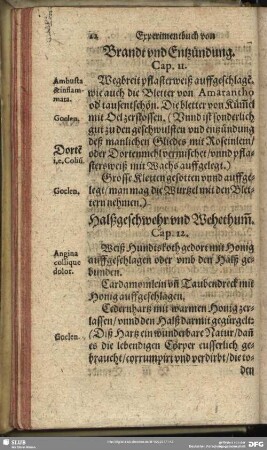 22 Experimentbuch von
Brandt vnd Entzündung.
Cap. 11.
Ambusta
& inflam-
mata.
Wegbreit pflasterweiß auffgeschlagē.
wie auch die Bletter von Amarantho
od tausentschön. Die bletter von Kūmel
Goclen.
mit Oel zerstossen. (Vnnd ist sonderlich
gut zu den geschwulsten vnd entzündung
deß manlichen Gliedes mit Rosenlein/
Dortē
i.e. Coliū.
oder Dortenmehl vermischet/vnnd pfla-
stersweiß mit Wachs auffgelegt.)
Grosse Kletten gesotten vnnd auffge-
Goclen.
legt/man mag die Wurtzel mit den Blet-
tern nehmen.)
Halßgeschwehr vnd Wehethum̄.
Cap. 12.
Angina
collique
dolor.
Weiß Hundtskoth gedort mit Honig
auffgeschlagen oder vmb den Halß ge-
bunden.
Cardamomlein vn̄ Taubendreck mit
Honig auffgeschlagen.
Cedernhartz mit warmen Honig zer-
lassen/vnnd den Halß darmit gegürgelt.
Goclen.
(Diß Hartz ein wunderbare Natur/dan̄
es die lebendigen Cörper eusserlich ge-
braucht/corrumpirt vnd verdirbt/die to-
den
SLUB
DFG